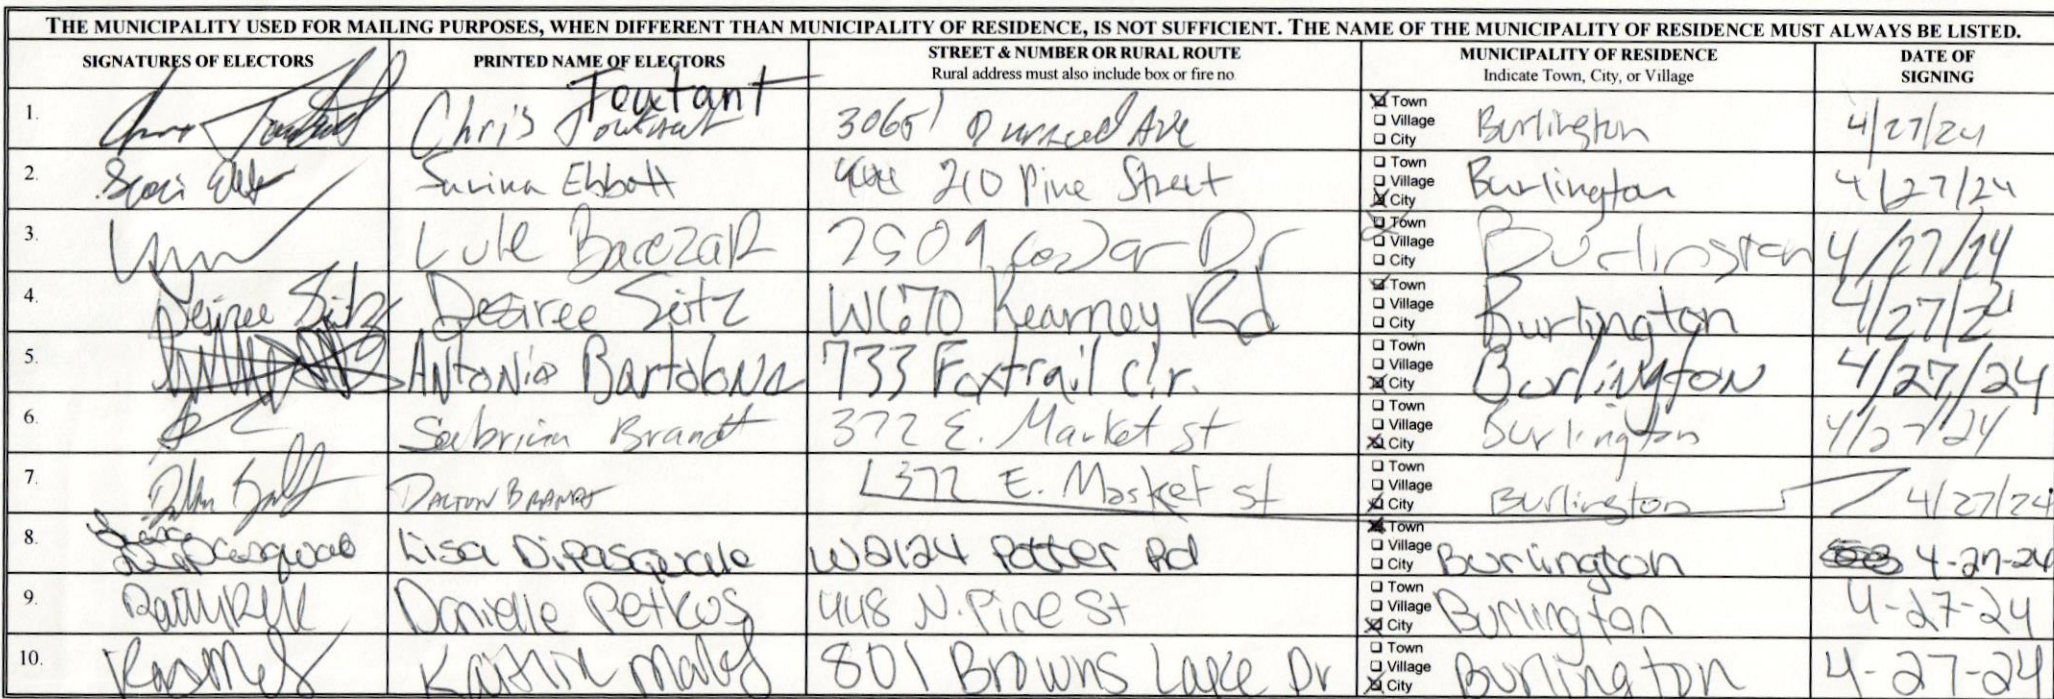 THE MUNICIPALITY USED FOR MAILING PURPOSES, WHEN DIFFERENT THAN MUNICIPALITY OF RESIDENCE, IS NOT SUFFICIENT. THE NAME OF THE MUNICIPALITY OF RESIDENCE MUST ALWAYS BE LISTED.
SIGNATURES OF ELECTORS PRINTED NAME OF ELECTORS STREET & NUMBER OR RURAL ROUTE MUNICIPALITY OF RESIDENCE DATE OF
Rural address must also include box or fire no Indicate Town, City, or Village SIGNING
Toutant
1. Chris Toutant 30651 Durand Ave Town Village City Burlington 4/27/24
2. Ebbott 210 Pine Street Town Village City Burlington 4/27/24
3. Luke 2909 Cedar Dr Town Village City Burlington 4/27/24
4. Desiree Seitz Desiree Seitz W670 Kearney Rd Town Village City Burlington 4/27/24
5. Antonio 733 Foxtrail cir. Town Village City Burlington 4/27/24
6. Sabrina Brandt 372 E. Market st Town Village City Burlington 4/27/24
7. DALTON BRANDT 372 E. Market st Town Village City Burlington 4/27/24
8. Lisa DiPasquale W2124 Potter Rd Town Village City Burlington 4-27-24
9. Danielle Petkus 448 N. Pine St Town Village City Burlington 4-27-24
10. Kaitlin 801 Browns Lake Dr Town Village City Burlington 4-27-24